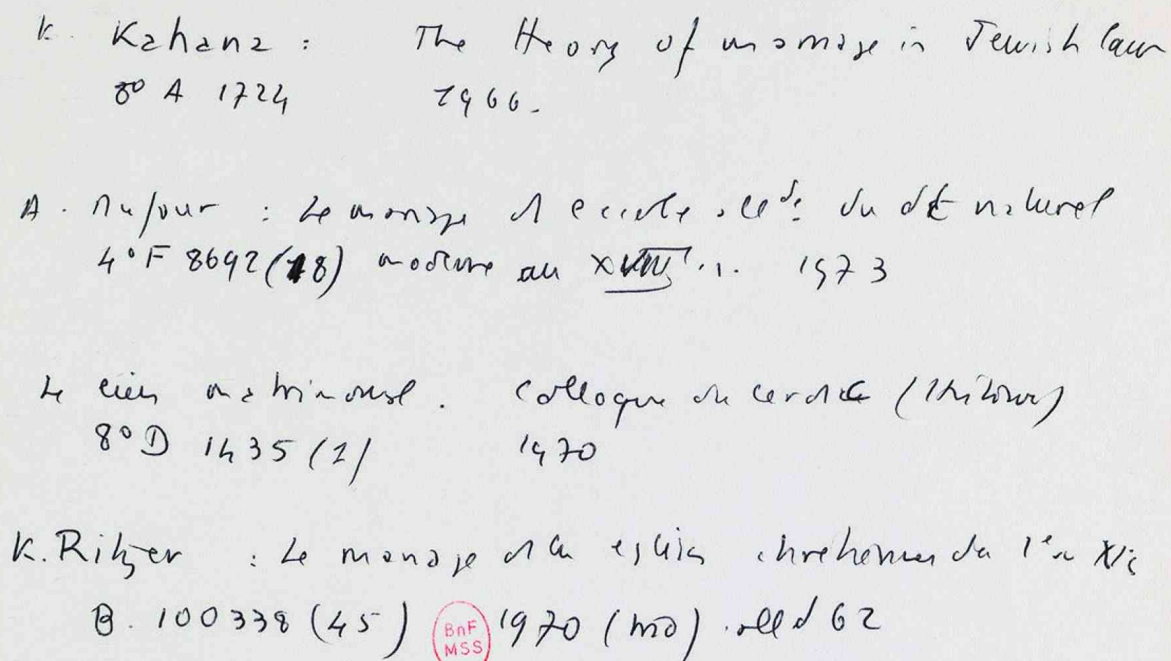 K. Kahana : The theory of marriage in Jewish law
8° A 1724 1966.
A. Dufour : Le mariage ds l'école alldе du dt naturel
4° F 8692 (18) moderne au XVIII s. 1973
Le lien matrimonial. Colloque du Cerdic (Strasbourg)
8° D 1435 (1) 1970
K. Ritzer : Le mariage ds les églises chrétiennes du 1er au XIe
B. 100338 (45) 1970 (trad) . all d 62
BnF
MSS